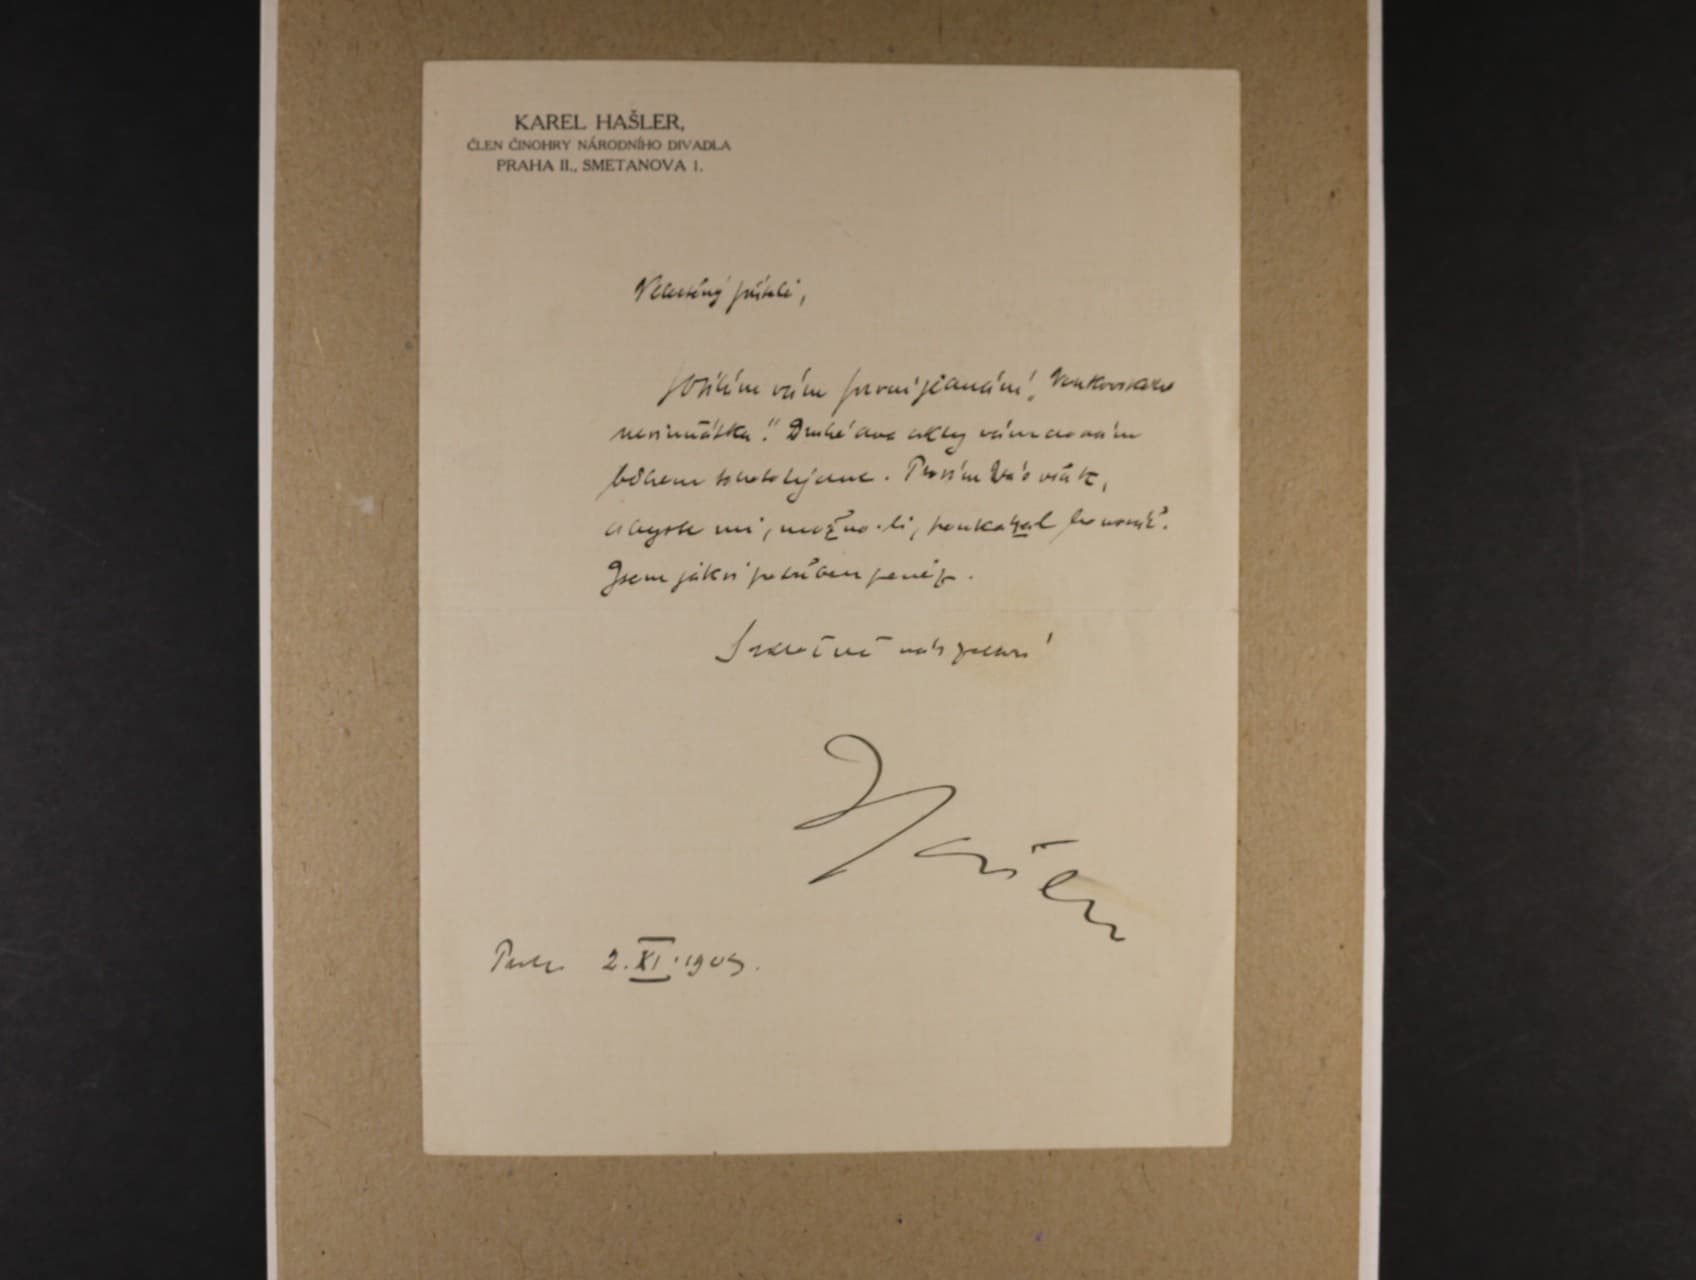 KAREL HAŠLER,
ČLEN ČINOHRY NÁRODNÍHO DIVADLA
PRAHA II., SMETANOVA 1.
Velectěný příteli,
vám první jednání „Venkovského
Druhé dva akty vám dodám
během tohoto týdne. Prosím Vás však,
abyste mi, možno-li, poukázal honorář.
Jsem jaksi potřeben peněz.
Srdečně vás zdraví
Hašler
Praha 2. XI. 1909.